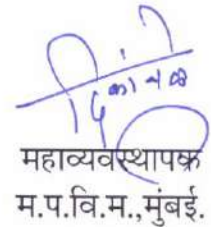 महाव्यवस्थापक
म.प.वि.म.,मुंबई.